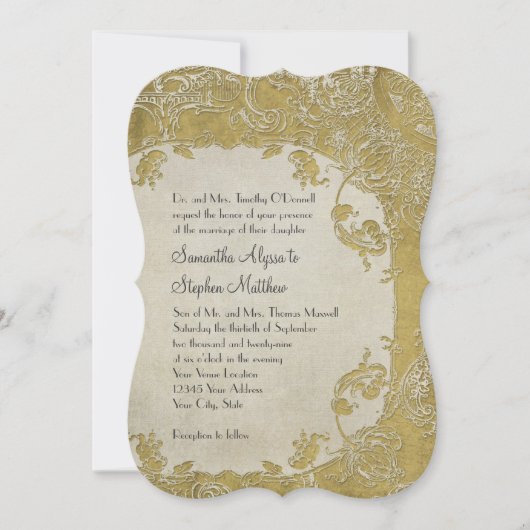 Dr. and Mrs. Timothy O'Donnell
request the honor of your presence
at the marriage of their daughter
Samantha Alyssa to
Stephen Matthew
Son of Mr. and Mrs. Thomas Maxwell
Saturday the thirtieth of September
two thousand and twenty-nine
at six o'clock in the evening
Your Venue Location
12345 Your Address
Your City, State
Reception to follow